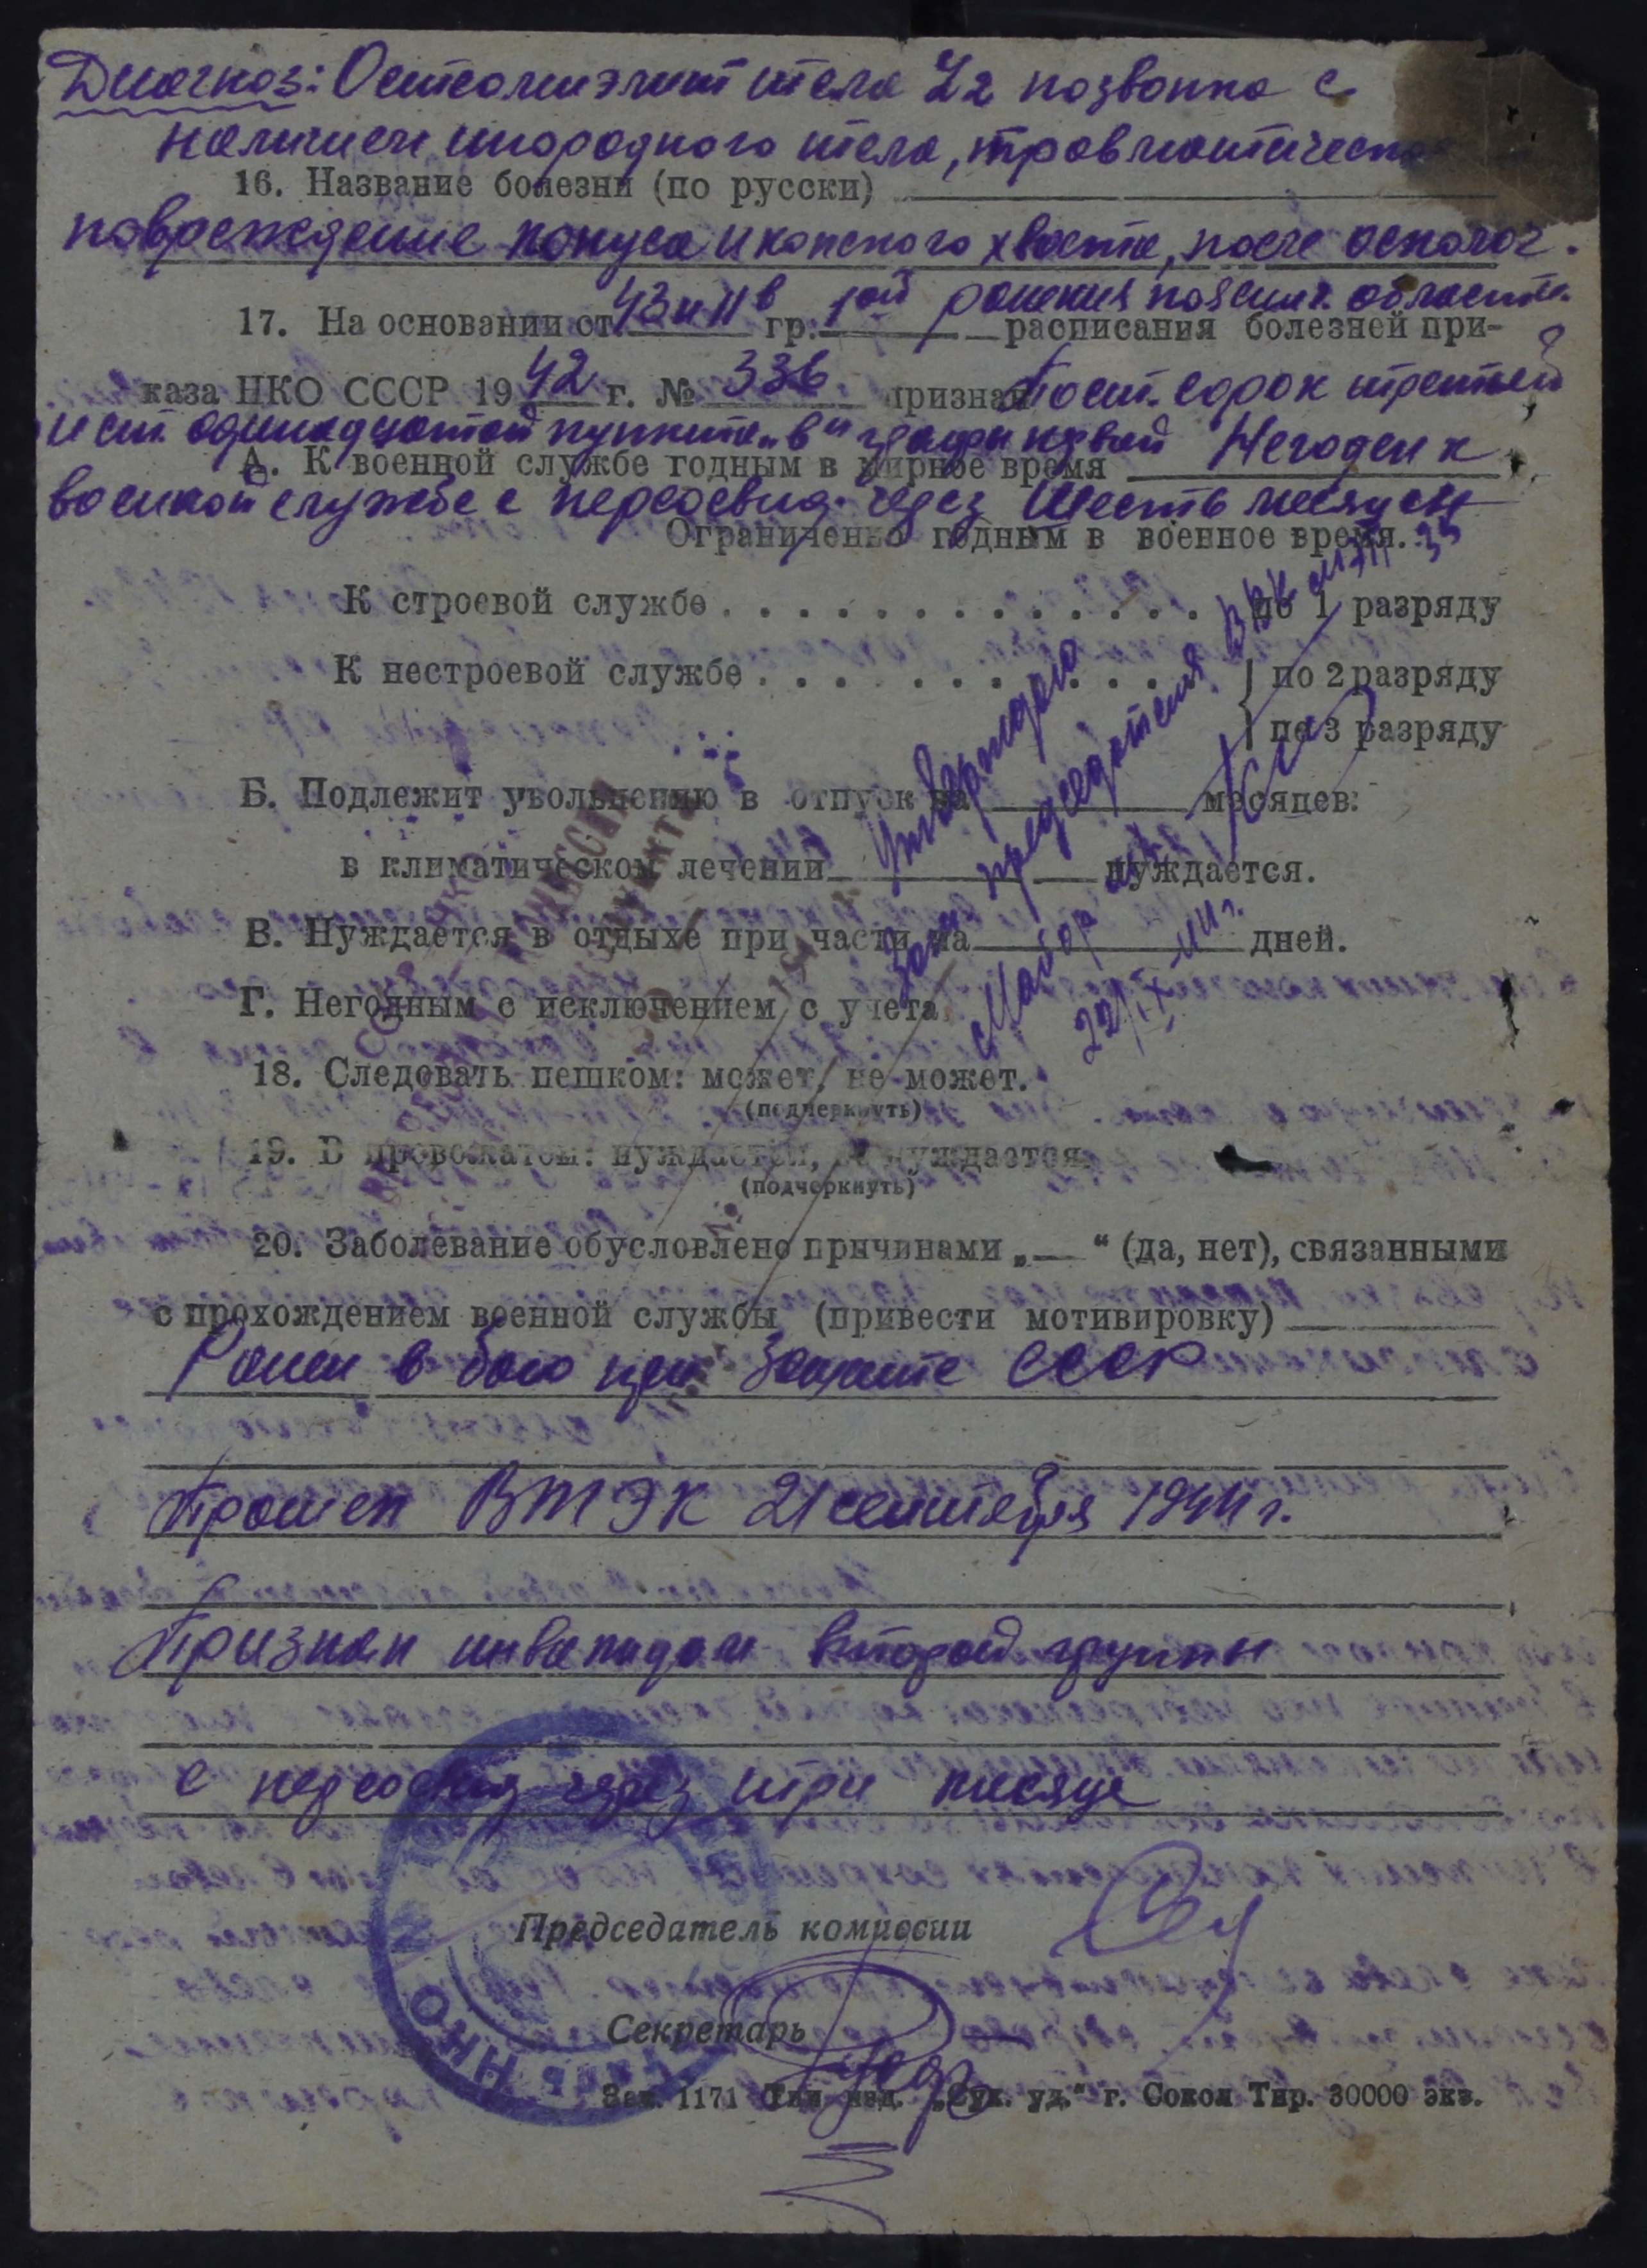 Диагноз: Остеомиэлит тела L2 позвонка с
наличием инородного тела, травматическое
16. Название болезни (по русски)
повреждение конуса и конского хвоста, после осколоч.
ранения пояснич. области.
17. На основании ст. 43 и 11в гр. 1ой расписания болезней при-
каза НКО СССР 1942 г. № 336 признан По ст. сорок третьей
и ст. одинадцатой пункта „в" графы первой Негоден к
А. К военной службе годным в мирное время
военной службе с переосвид. через шесть месяцев
Ограниченно годным в военное время.
К строевой службе . . . . . . . . . . . . . по 1 разряду
К нестроевой службе . . . . . . . . . . . по 2 разряду
по 3 разряду
Б. Подлежит увольнению в отпуск на месяцев:
в климатическом лечении нуждается.
В. Нуждается в отдыхе при части на дней.
Г. Негодным с исключением с учета
Утверждаю
Зам. председателя ВВК
Майор
22/IX-44 г.
18. Следовать пешком: может, не может.
(подчеркнуть)
19. В провожатом: нуждается, не нуждается.
(подчеркнуть)
20. Заболевание обусловлено причинами „—“ (да, нет), связанными
с прохождением военной службы (привести мотивировку)
Ранен в бою при защите СССР
Прошел ВТЭК 21 сентября 1944 г.
Признан инвалидом второй группы
с переосвид через три месяца
Председатель комиссии
Секретарь
Зак. 1171 Тип. изд. „Сух. уд.“ г. Сокол Тир. 30000 экз.